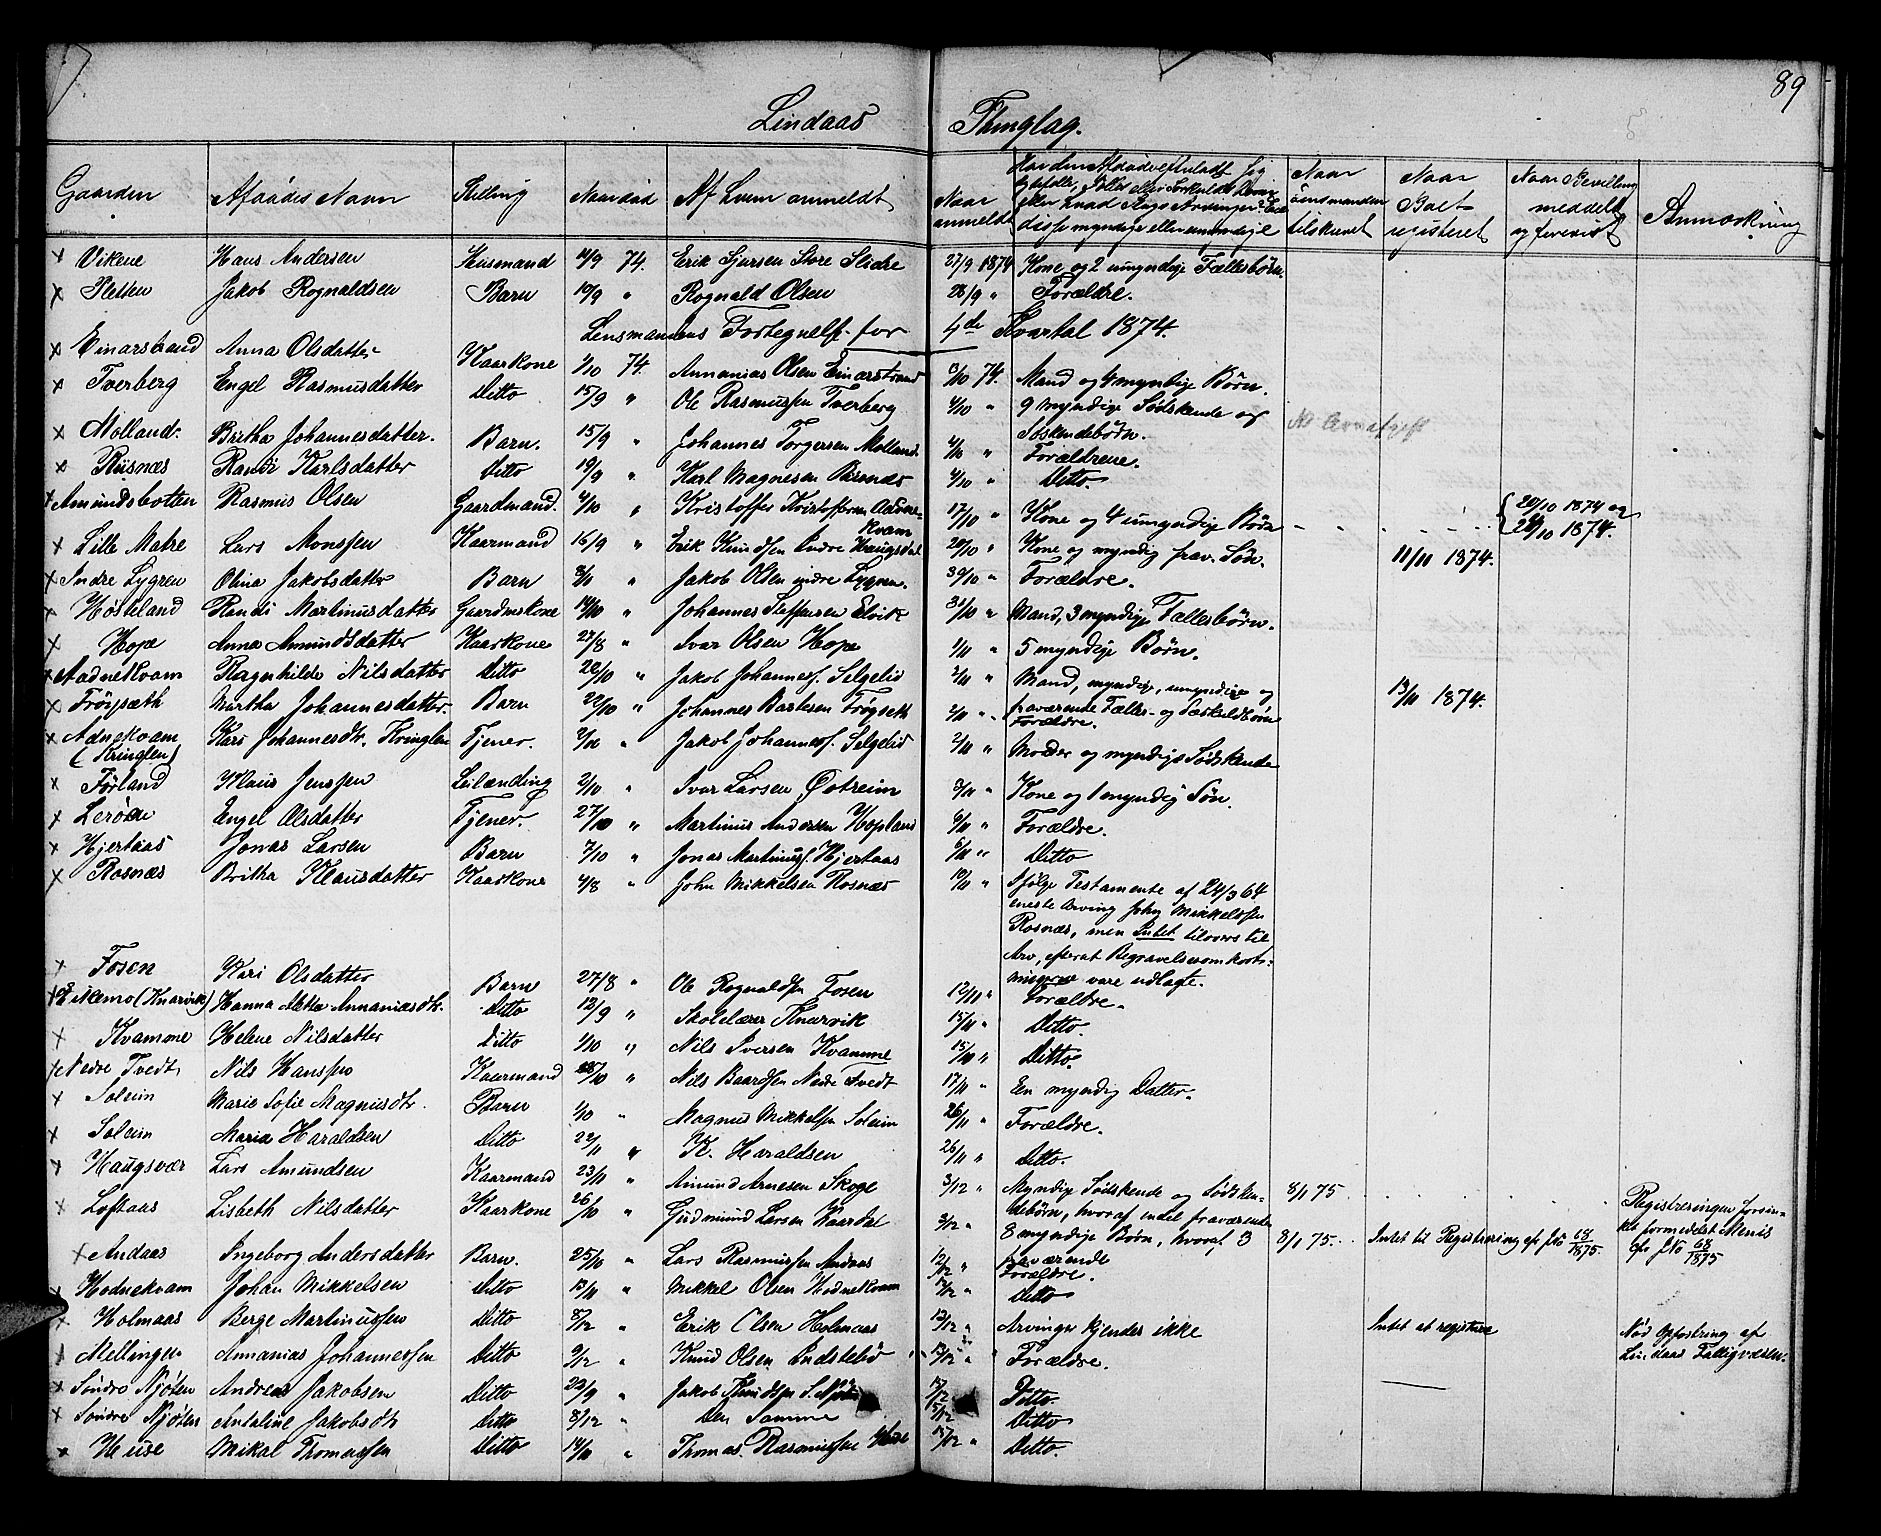 89
Lindaas Thinglag.
Gaarden Afdødes Navn Stilling Naar død Af hvem anmeldt Naar anmeldt Har den Afdøde efterladt sig Naar Lensmanden tilskrevet Naar Boet registreret Naar Bevilling meddelt og forevist Anmærkning
disse myndige eller umyndige
x Vikene Hans Andersen Huusmand 14/9 74. Erik Sjursen Store Slidre 27/9 1874 Kone og 2 umyndige Fællesbørn.
x Pletten Jakob Rognaldsen Barn 19/9 " Rognald Olsen 28/9 " Forældre.
Lensmandens Fortegnelse for 4de Kvartal 1874.
x Einarstrand Anna Olsdatter Kaarkone 1/10 74. Annanias Olsen Einarstrand 3/10 74. Mand og 4 myndige Børn.
x Tverberg Engel Rasmusdatter Ditto 15/9 " Ole Rasmussen Tverberg 4/10 " 9 myndige Sødskende og Søskendebørn.
x Molland. Britha Johannesdatter. Barn. 15/9 " Johannes Torgersen Molland 4/10 " Forældrene.
x Riisnæs Randi Karlsdatter Ditto 19/9 " Karl Magnesen Riisnæs 4/10 " Ditto.
x Amundsbotten Rasmus Olsen Gaardmand. 4/10 " Kristoffer Kristoffersen Adnekvam 17/10 " Kone og 4 umyndige Børn 20/10 1874 og 24/10 1874.
x Lille Matre Lars Monssen Kaarmand 16/9 " Erik Knudsen Indre Haugsdal 20/10 " Kone og myndig frav. Søn. 11/11 1874.
x Indre Lygren Olina Jakobsdatter Barn 8/11 " Jakob Olsen indre Lygren. 30/10 " Forældre.
x Høsteland Randi Martinusdatter Gaardmskone 14/10 " Johannes Steffensen Elvik 31/10 " Mand, 3 myndige Fællesbørn.
x Hope Anna Amundsdatter Kaarkone 27/8 " Ivar Olsen Hope 1/11 " 5 myndige Børn.
x Aadnekvam Ragnhilde Nilsdatter Ditto 20/10 " Jakob Johanness. Selgelid 2/11 " Mand, myndige, umyndige og fraværende Fælles- og Særskildbørn 13/11 1874.
x Frøyseth Martha Johannesdatter. Barn 22/10 " Johannes Bartesen Frøyseth 2/11 " Forældre.
x Adnekvam (Kringlen) Kari Johannesdtr. Kringlen Tjener. 2/10 " Jakob Johanness. Selgelid 2/11 " Moder og myndige Sødskende
x Førland Klaus Jenssen Leilænding 2/10 " Ivar Larsen Østreim 3/11 " Kone og 1 myndig Søn.
x Lerøen Engel Olsdatter Tjener. 27/10 " Martinus Andersen Hopland 6/11 " Forældre.
x Hjertaas Jonas Larsen Barn 7/10 " Jonas Martinuss. Hjertaas 5/11 " Ditto
x Rosnæs Britha Klausdatter Kaarkone 4/8 " John Mikkelsen Rosnæs 10/11 " Ifølge Testamente af 24/3 64
eneste Arving John Mikkelsen
Rosnæs, men Intet tilovers til
Arv, efterat Begravelsesomkost-
ningerne vare udlagte.
x Fosen Kari Olsdatter Barn 27/8 " Ole Rognaldsen Fosen 12/11 " Forældre.
x Eikemo (Knarvik) Hanna Mette Annaniasdtr. Ditto 12/9 " Skolelærer Knarvik 15/11 " Ditto.
x Kvamone Helene Nilsdatter Ditto 1/10 " Nils Iversen Kvamme 15/10 " Ditto.
x Nedre Tvedt Nils Hanssen Kaarmand 28/10 " Nils Baardsen Nedre Tvedt 17/11 " En myndig Datter.
x Soleim Marie Sofie Magnusdtr. Barn 1/10 " Magnus Mikkelsen Soleim 26/11 " Forældre.
x Soleim Maria Haraldsen Ditto 22/11 " K. Haraldsen 26/11 " Ditto.
x Haugsvær Lars Amundsen Kaarmand 23/11 " Amund Arnesen Skoge 3/12 " Myndige Sødskende og Sødskendebørn, hvoraf endel fraværende 8/1 75. Registreringen forsinket formedelst Menis
x Loftaas Lisbeth Nilsdatter Kaarkone 26/10 " Gudmund Larsen Kaardal 3/12 " 8 myndige Børn, hvoraf 3 fraværende 8/1 75. Intet til Registrering cfr. JNo 68/1875. Cfr JNo 68/1875
x Andaas Ingeborg Andersdatter Barn. 25/10 " Lars Rasmussen Andaas 12/12 " Forældre.
x Hodnekvam Johan Mikkelsen Ditto 13/11 " Mikkel Olsen Hodnekvam 12/12 " Ditto
x Holmaas Berge Martinussen Ditto 8/12 " Erik Olsen Holmaas 13/12 " Arvinger kjendes ikke Intet at registrere Nød Opfostring af Lindaas Fattigvæsen.
x Mellingen Annanias Johannessen Ditto 9/12 " Knud Olsen Indstelid 13/12 " Forældre.
x Søndre Njøten Andreas Jakobsen Ditto 23/9 " Jakob Knudsen S. Njøten 15/12 Ditto.
x Søndre Njøten Antaline Jakobsdtr Ditto 8/12 " Den Samme 15/12 Ditto
x Huse Mikal Thomassen Ditto 14/11 " Thomas Rasmussen Huse 15/12 " Ditto.